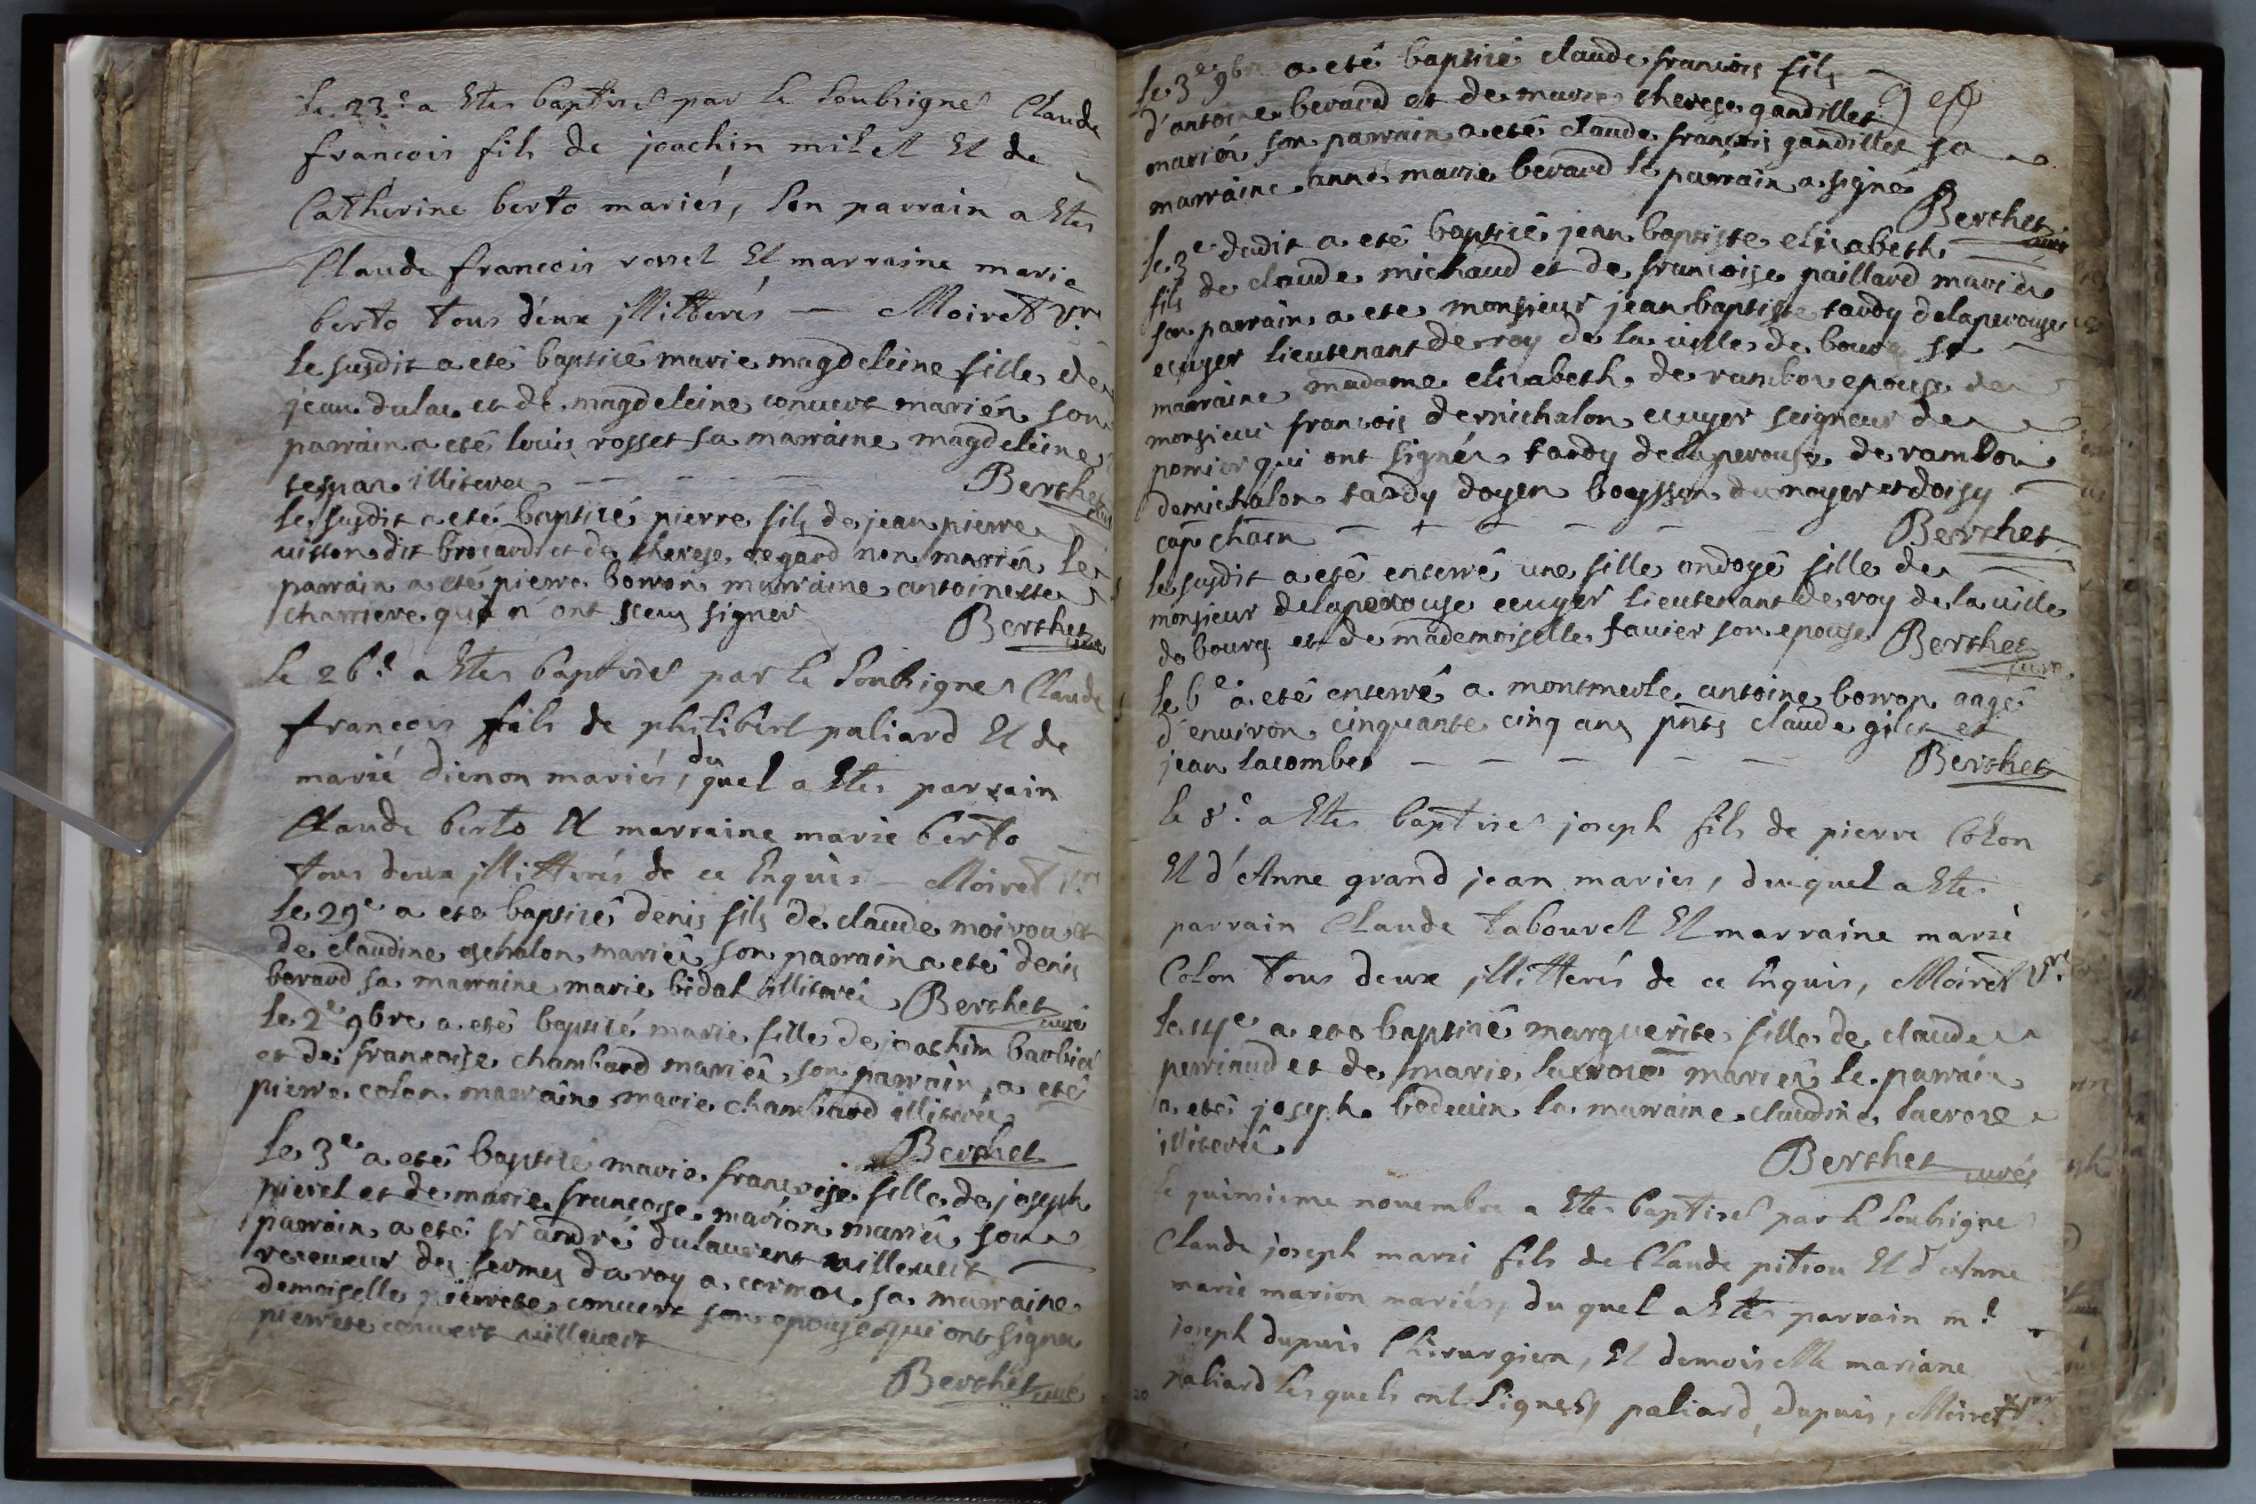 Le 23e a Etes baptisé par le soubsignés Claude
francois fils de joachin milet Et de
Catherine berto mariés, Son parrain a Etes
Claude francois rosset Et marraine marie
berto tous deux jllitterés — Moiret vre
le susdit a eté bapticé marie magdeleine fille de
jean dulac et de magdeleine convert mariés son
parrain a eté louis rosset sa marraine magdeleine
illiterez Berthet curé
le susdit a eté bapticé pierre fils de jean pierre
vitton dit brocard et de therese regard non mariés le
parrain a eté pierre borron marraine antoinette
charriere qui n'ont sceu signer Berthet curé
le 26e a Etes baptisés par le Soubsignes Claude
francois fils de philibert paliard Et de
marié dienon mariés, du quel a Etes parrain
Claude berto Et marraine marie berto
tous deux jllitterés de ce Enquis — Moiret vre
Le 29e a eté bapticé denis fils de claude moiroux et
de claudine eschalon mariés son parrain a eté denis
berard sa marraine marie bidal illiterés Berthet curé
le 2e 9bre a eté bapticé marie fille de joachim barbier
et de francoise chambard mariés son parrain a eté
pierre colon marraine marie chambard illiterés
Berthet
le 3e a eté bapticé marie françoise fille de joseph
pieret et de marie francoise marion mariés son
parrain a eté sr andré dulaurent villevert
receveur des fermes du roy a cormoz sa marraine
demoiselle pierrete convert son epouse qui ont signé
pierrete convert villevert
Berthet curé
le 3e 9bre a eté bapticé claude francois fils
d'antoine berard et de marie therese gandillet
mariés son parrain a eté claude françois gandillet sa
marraine anne marie berard le parrain a signé
Berthet curé
le 3e dudit a eté bapticé jean baptiste elisabeth
fils de claude michaud et de francoise paillard mariés
son parrain a eté monsieur jean baptiste tardy delaperouse
ecuyer lieutenant de roy de la ville de bourg sa
marraine madame elisabeth de rambou epouse de
monsieur françois demichalon ecuyer seigneur de
pomier qui ont signés tardy delaperouse de rambou
demichalon tardy doyen boysson du noyer et doisy
Berthet
le susdit a eté enterré une fille ondoyé fille de
monsieur delaperouse ecuyer lieutenant de roy de la ville
de bourg et de mademoiselle favier son epouse Berthet curé
le 6e a eté enterré a montmerle antoine borron aagé
d'environ cinquante cinq ans pnts claude gilet et
jean lacombe — — — — — Berthet
le 8e a Etes baptisés joseph fils de pierre Colon
Et d'Anne grand jean mariés, du quel a Etes
parrain Claude tabouret Et marraine marie
Colon tous deux jllitterés de ce Enquis, Moiret vre
le 14e a eté bapticé marguerite fille de claude
perriaud et de marie lacroix mariés le parrain
a eté joseph boduin la marraine claudine lacroix
illiterés
Berthet curé
le quinsieme novembre a Etes baptisés par le Soubsigné
Claude joseph marie fils de Claude pitiou Et d'Anne
marie marion mariés, du quel a Etes parrain mr
joseph dupuis Chirurgien, Et demoiselle mariane
paliard les quels ont Signes, paliard, dupuis, Moiret vre